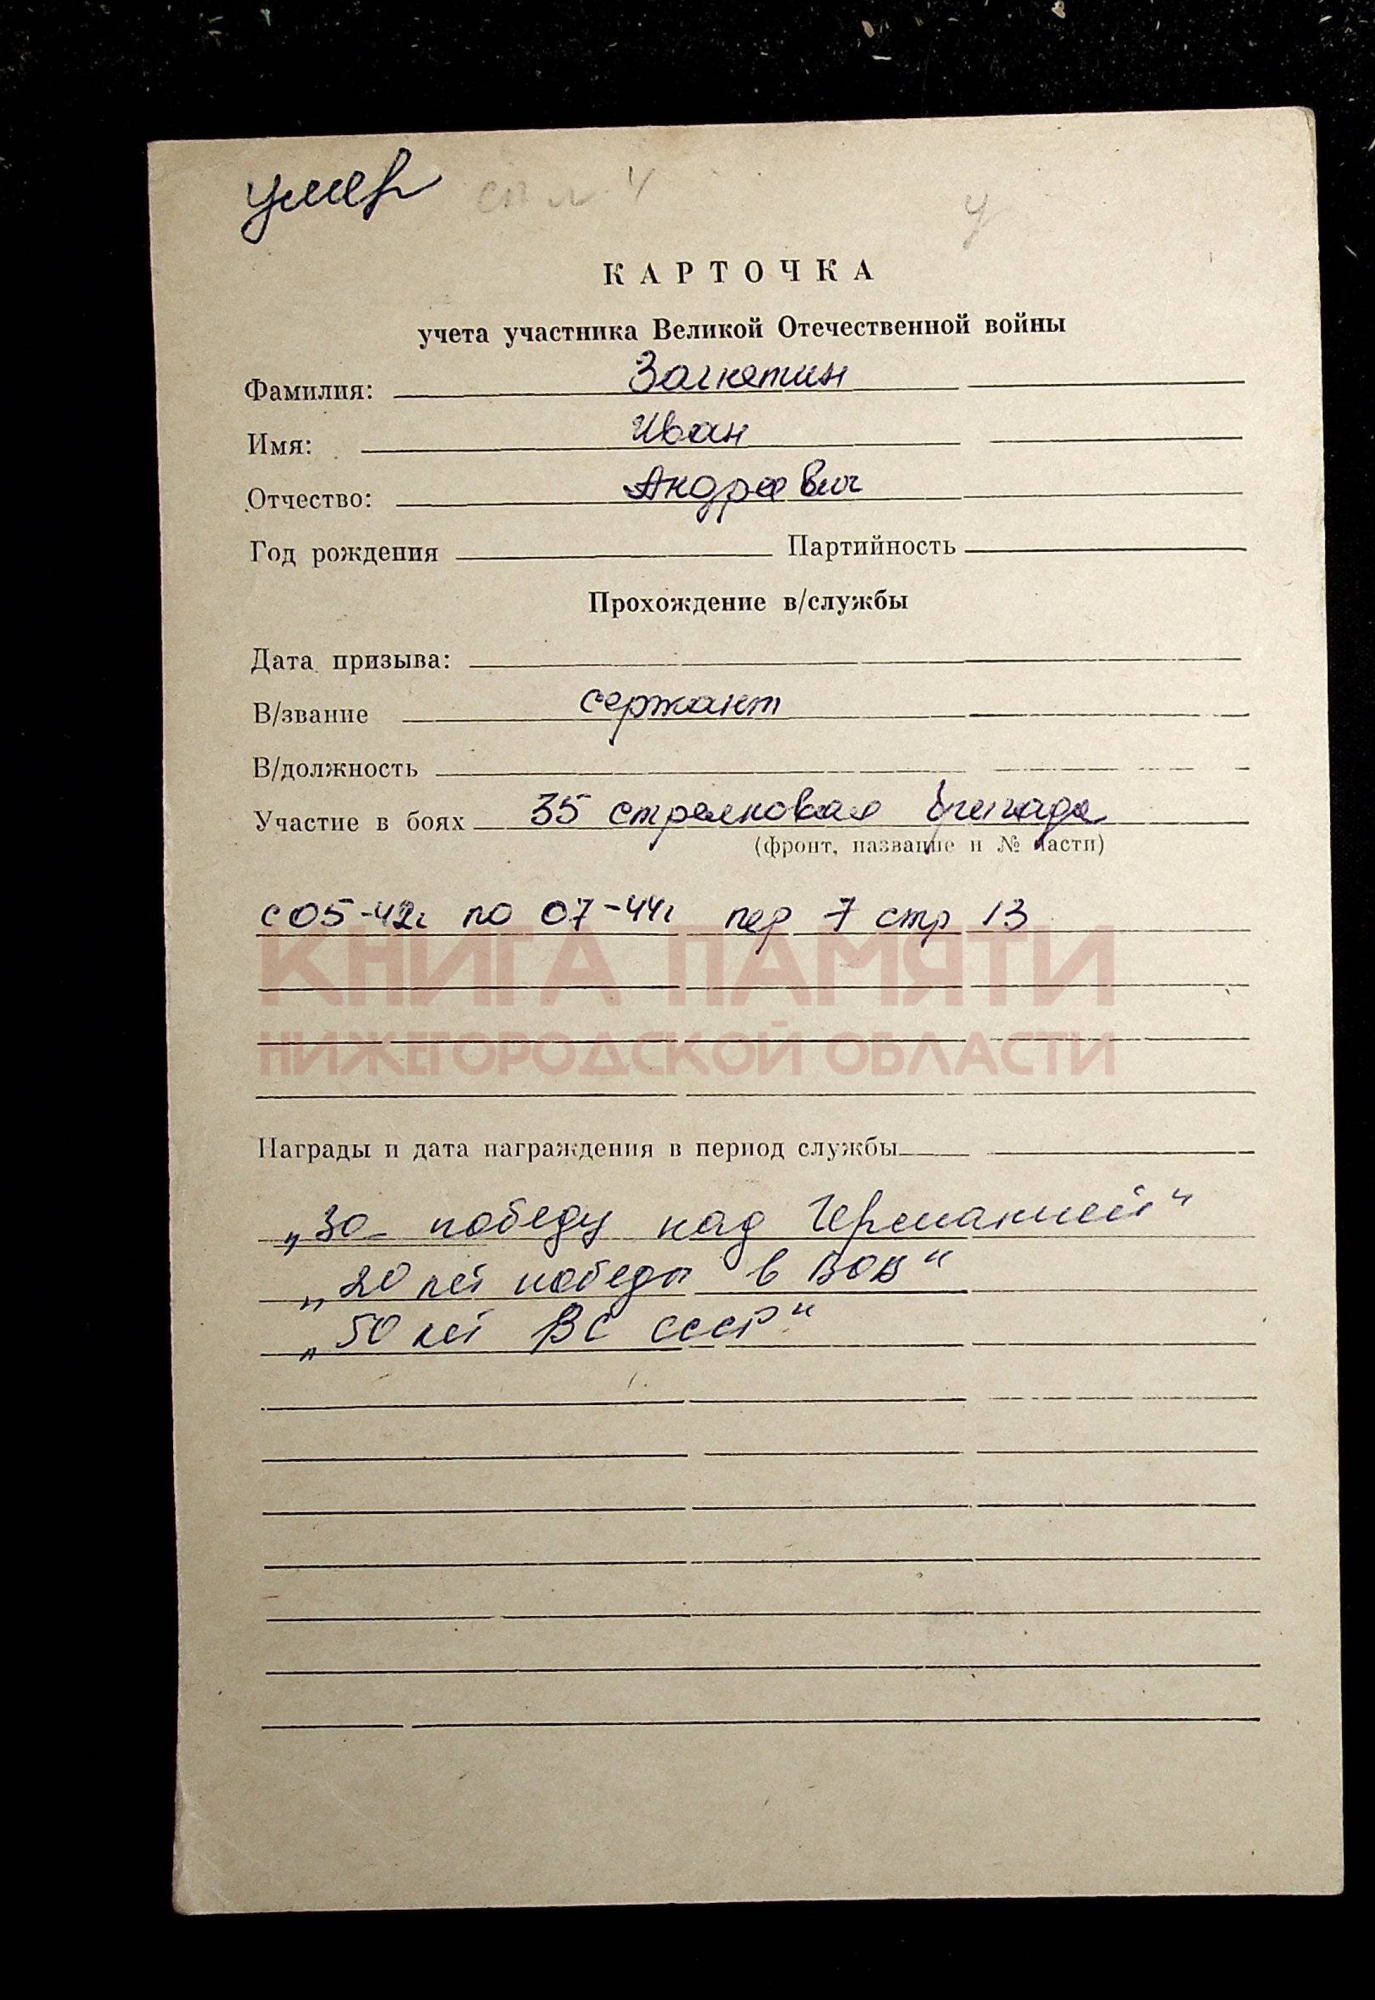 умер
К А Р Т О Ч К А
учета участника Великой Отечественной войны
Фамилия: Загнетин
Имя: Иван
Отчество: Андреевич
Год рождения Партийность
Прохождение в/службы
Дата призыва:
В/звание сержант
В/должность
Участие в боях 35 стрелковая бригада
(фронт, название и № части)
с 05-42г по 07-44г пер 7 стр 13
КНИГА ПАМЯТИ
НИЖЕГОРОДСКОЙ ОБЛАСТИ
Награды и дата награждения в период службы
„За победу над Германией“
„20 лет победы в ВОВ“
„50 лет ВС СССР“